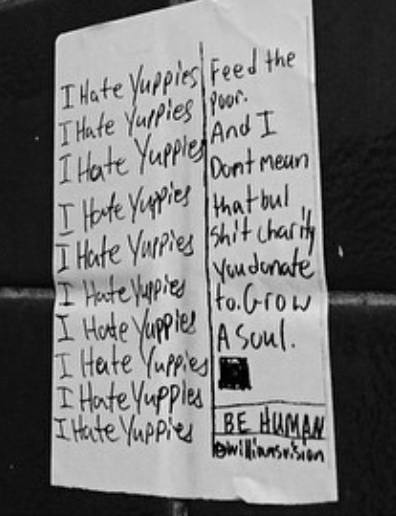 I Hate Yuppies
I Hate Yuppies
I Hate Yuppies
I Hate Yuppies
I Hate Yuppies
I Hate Yuppies
I Hate Yuppies
I Hate Yuppies
I Hate Yuppies
I Hate Yuppies
Feed the
Poor.
And I
Dont mean
that bul
shit charity
you donate
to. Grow
A Soul.
BE HUMAN
@williamsvision